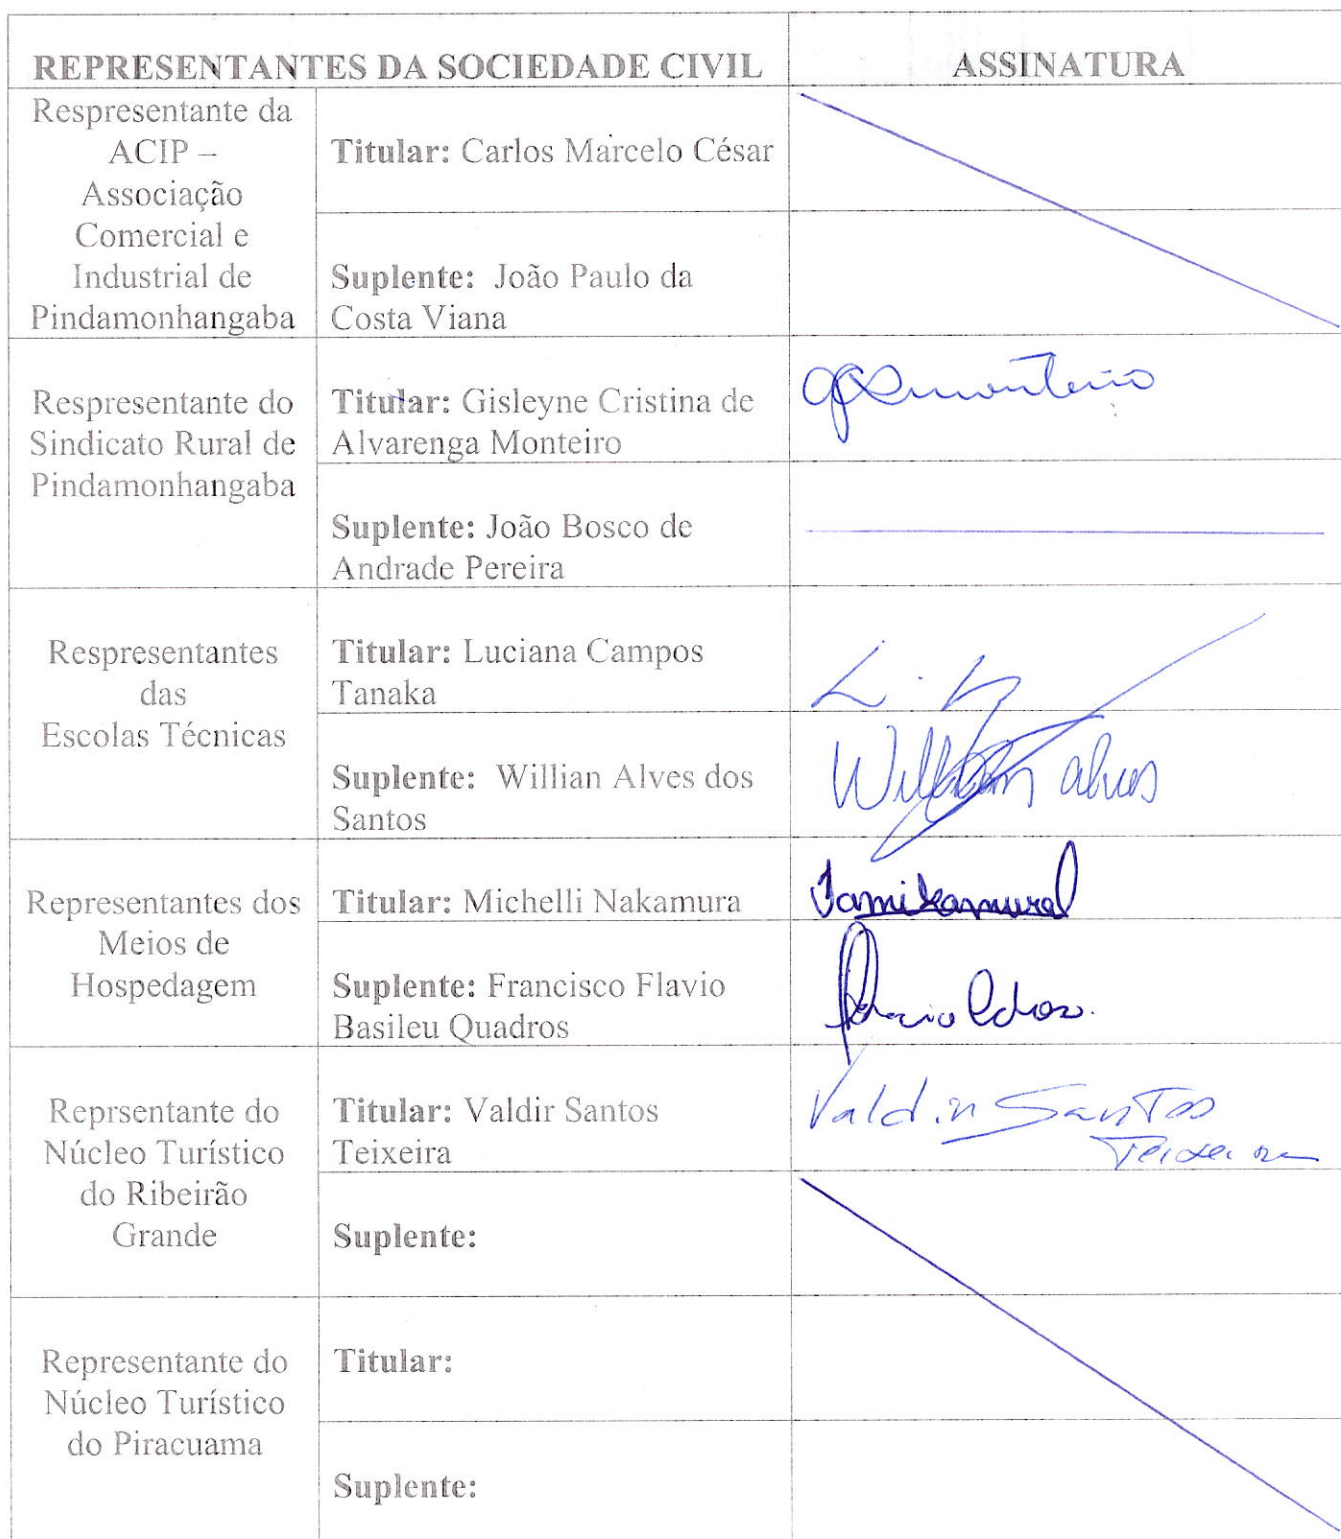 REPRESENTANTES DA SOCIEDADE CIVIL
ASSINATURA
Respresentante da
ACIP –
Associação
Comercial e
Industrial de
Pindamonhangaba
Titular: Carlos Marcelo César
Suplente: João Paulo da
Costa Viana
Respresentante do
Sindicato Rural de
Pindamonhangaba
Titular: Gisleyne Cristina de
Alvarenga Monteiro
Suplente: João Bosco de
Andrade Pereira
Respresentantes
das
Escolas Técnicas
Titular: Luciana Campos
Tanaka
Suplente: Willian Alves dos
Santos
Willian Alves
Representantes dos
Meios de
Hospedagem
Titular: Michelli Nakamura
Suplente: Francisco Flavio
Basileu Quadros
Reprsentante do
Núcleo Turístico
do Ribeirão
Grande
Titular: Valdir Santos
Teixeira
Valdir Santos
Teixeira
Suplente:
Representante do
Núcleo Turístico
do Piracuama
Titular:
Suplente: